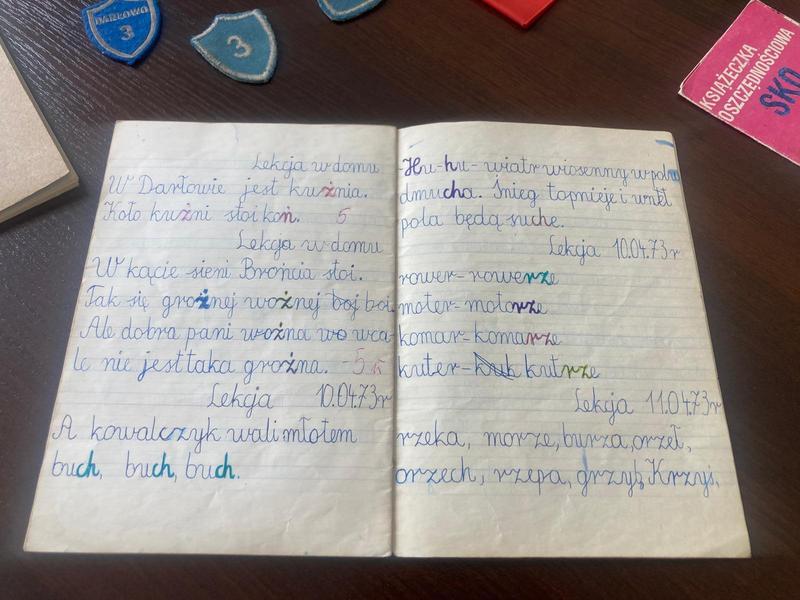 DARŁOWO
3
3
KSIĄŻECZKA
OSZCZĘDNOŚCIOWA
SKO
Lekcja w domu
W Darłowie jest kużnia.
Koło kużni stoi koń. 5
Lekcja w domu
W kącie sieni Brońcia stoi.
Tak się grożnej wożnej boj boi.
Ale dobra pani wożna wo wca-
le nie jest taka grożna. -5
Lekcja 10.04.73r
A kowalczyk wali młotem
buch, buch, buch.
Hu-hu- wiatr wiosenny w polu
dmucha. Śnieg topnieje i wnet
pola będą suche.
Lekcja 10.04.73r
rower-rowerze
motor-motorze
komar-komarze
kuter-kuk kutrze
Lekcja 11.04.73r
rzeka, morze, burza, orzeł,
orzech, rzepa, grzyb, Krzyś,